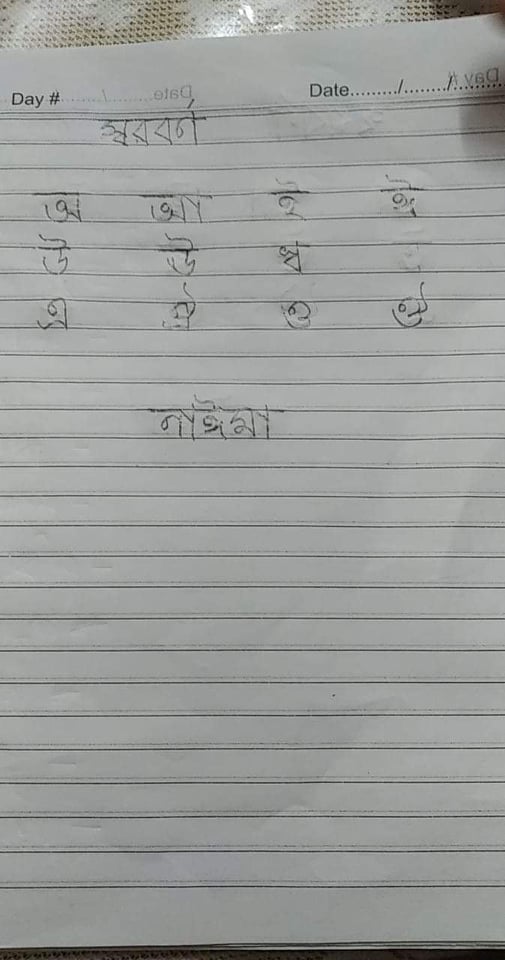 Day #........./ Date........./......../.........
স্বরবর্ণ
অ আ ই ঈ
উ ঊ ঋ
এ ঐ ও ঔ
নাঈমা